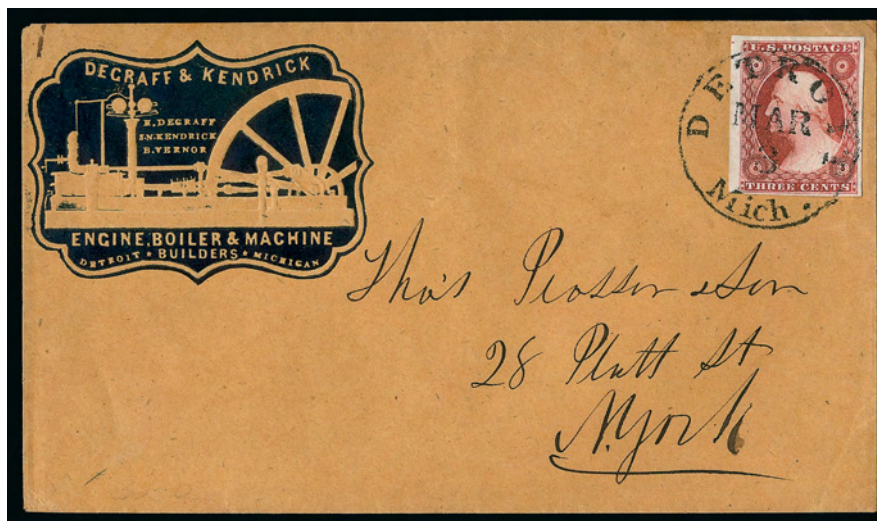 DEGRAFF & KENDRICK
H. DEGRAFF
S.N. KENDRICK
B. VERNOR
ENGINE, BOILER & MACHINE
BUILDERS
DETROIT * * MICHIGAN
U.S. POSTAGE
THREE CENTS
DETRO
MAR
Mich
Thos Prosser & Son
28 Platt St
N.York